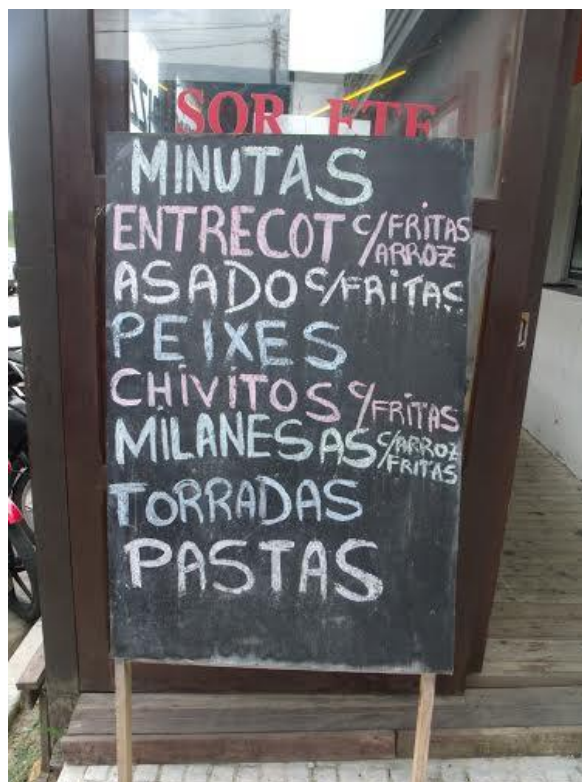 SOR ETE
MINUTAS
ENTRECOT C/FRITAS
/ARROZ
ASADO C/FRITAS
PEIXES
CHIVITOS C/FRITAS
MILANESAS C/ARROZ
/FRITAS
TORRADAS
PASTAS